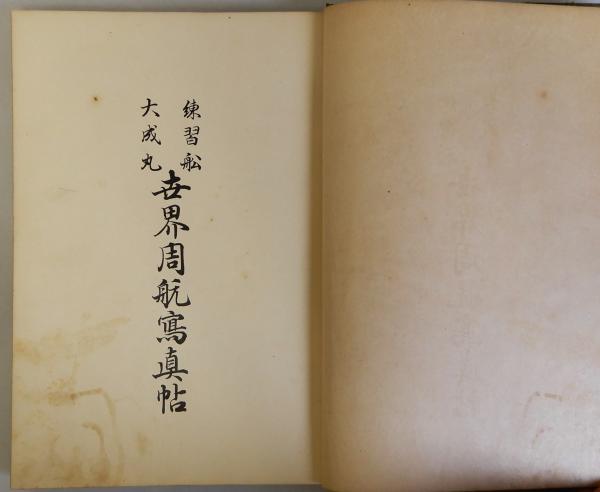 練習舩
大成丸
世界周航寫真帖